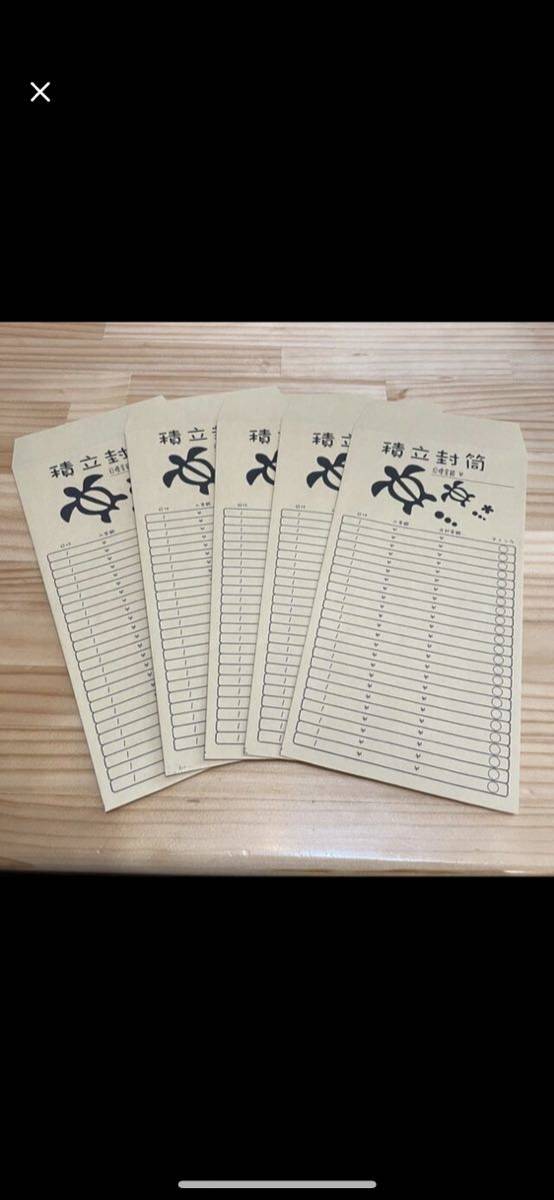 積立封
積立
積
積立
積立封筒
目標金額 ¥
日付 入金額 合計金額 チェック